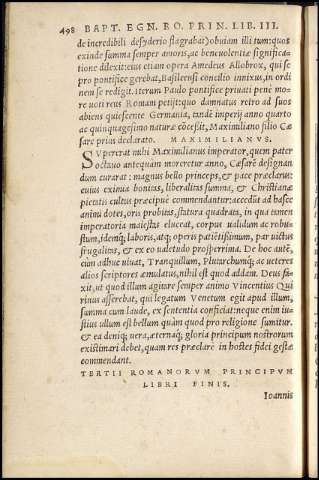 498 BAPT. EGN. RO. PRIN. LIB. III.
de incredibili desyderio flagrabat) obuiam illi tum: quos
exinde summa semper amoris, ac beneuolentiæ significa-
tione dilexit: eius etiam opera Amedeus Allobrox, qui se
pro pontifice gerebat, Basilensi concilio innixus, in ordi
nem se redigit. Iterum Paulo pontifice priuati pene mo-
re uoti reus Romam petijt: quo damnatus retro ad suos
abiens quiescente Germania, tandẽ imperij anno quarto
ac quinquagesimo naturæ cõcessit, Maximiliano filio Cæ
sare prius declarato. MAXIMILIANVS.
SVperest mihi Maximilianus imperator, quem pater
octauo antequam moreretur anno, Cæsarẽ designan
dum curarat: magnus bello princeps, & pace præclarus:
cuius eximia bonitas, liberalitas summa, & Christianæ
pietatis cultus præcipue commendantur: accedũt ad hasce
animi dotes, oris probitas, statura quadrata, in qua tamen
imperatoria maiestas eluceat, corpus ualidum ac robu-
stum, idemq; laboris, atq; operis patiẽtissimum, par uictus
frugalitas, & ex eo ualetudo prosperrima. De hoc autẽ,
cùm adhuc uiuat, Tranquillum, Plutarchumq; ac ueteres
alios scriptores æmulatus, nihil est quod addam. Deus fa-
xit, ut quod illum agitare semper animo Vincentius Qui
rinus asserebat, qui legatum Venetum egit apud illum,
summa cum laude, ex sententia conficiat: neque enim iu-
stius ullum est bellum quàm quod pro religione sumitur.
& ea deniq; uera, æternaq; gloria principum nostrorum
existimari debet, quam res præclarè in hostes fidei gestæ
commendant.
TERTII ROMANORVM PRINCIPVM
LIBRI FINIS.
Ioannis